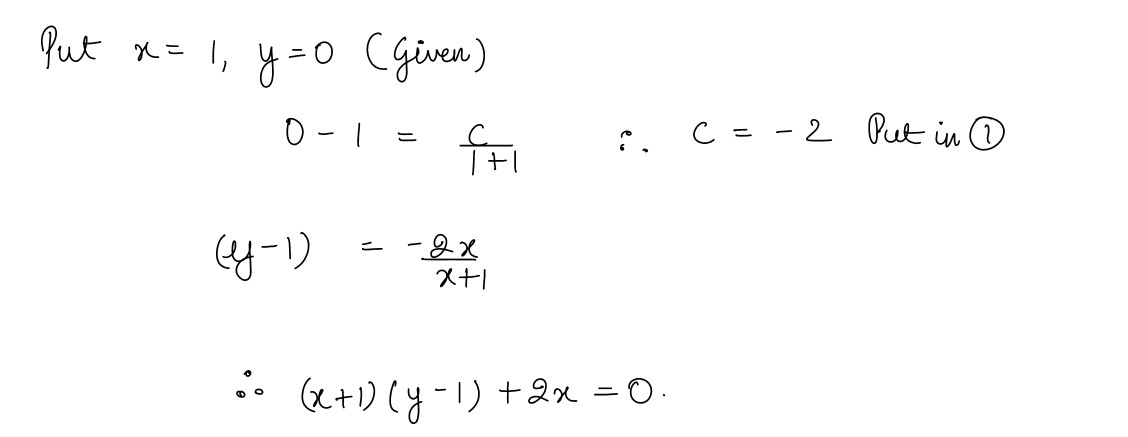 Put x = 1, y = 0 (Given)
0 - 1 = c/(1+1) ∴ c = -2 Put in ①
(y-1) = -2x/(x+1)
∴ (x+1)(y-1) + 2x = 0.